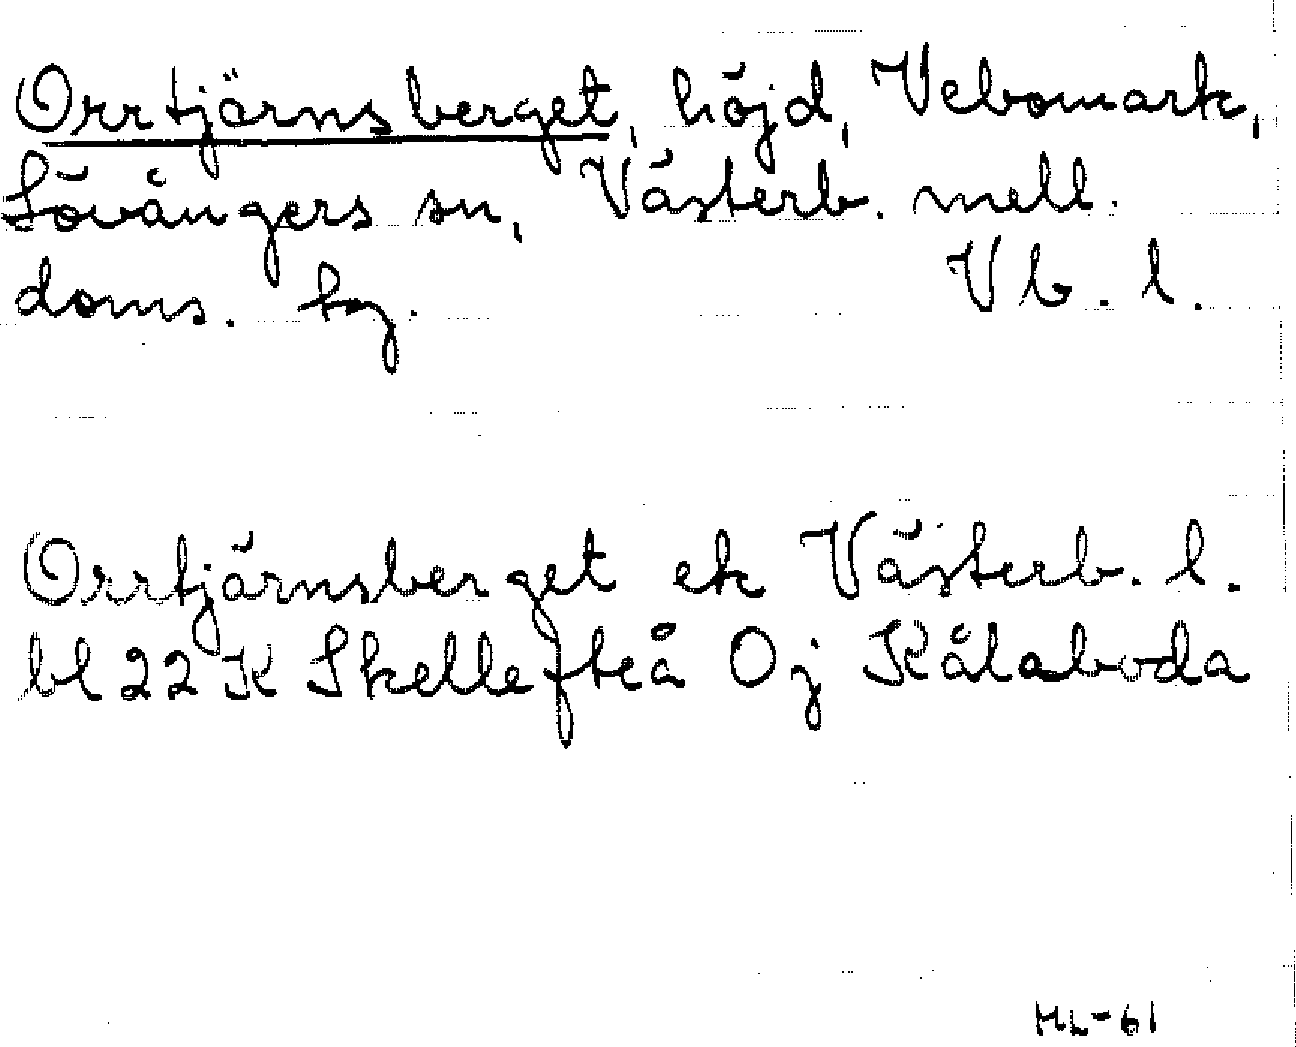 Orrtjärnsberget, höjd, Vebomark,
Lövångers sn, Västerb. mell.
doms. tg. Vb. l.
Orrtjärnsberget ek Västerb. l.
bl 22 K Skellefteå Oj Kålaboda
HL-61